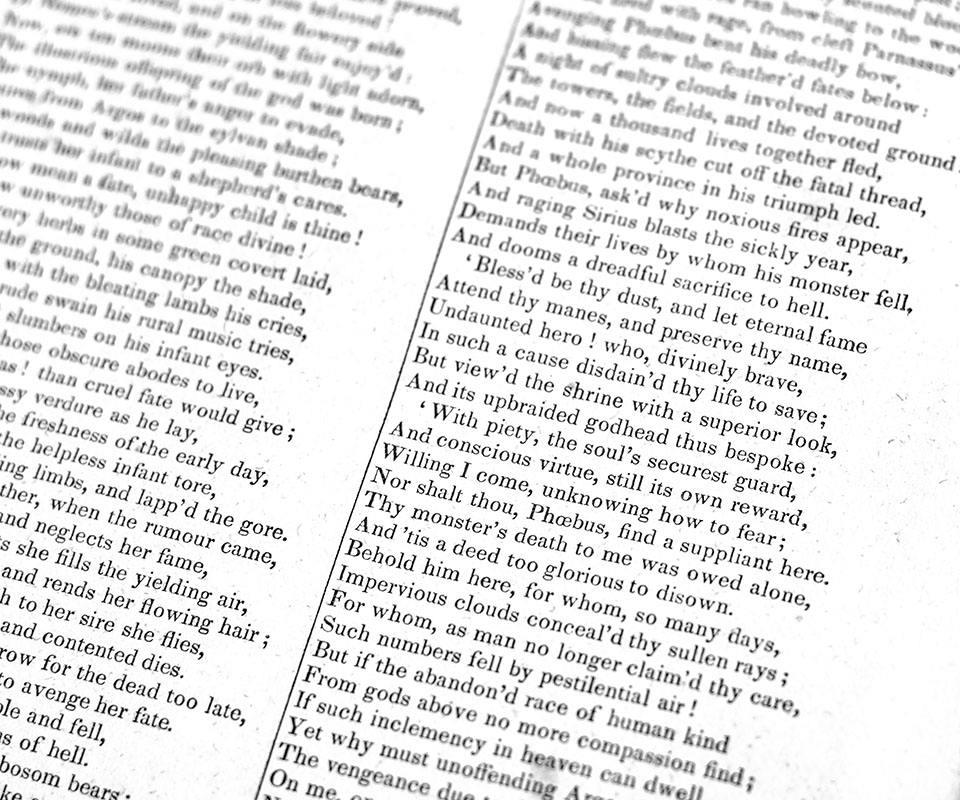 stream the yielding fair enjoy'd :
Now, on ten moons their orb with light adorn,
The illustrious offspring of the god was born ;
The nymph, her father's anger to evade,
from Argos to the sylvan shade ;
woods and wilds the pleasing burthen bears,
trusts her infant to a shepherd's cares.
mean a fate, unhappy child is thine !
unworthy those of race divine !
herbs in some green covert laid,
the ground, his canopy the shade,
with the bleating lambs his cries,
rude swain his rural music tries,
slumbers on his infant eyes.
those obscure abodes to live,
than cruel fate would give ;
verdure as he lay,
freshness of the early day,
the helpless infant tore,
limbs, and lapp'd the gore.
when the rumour came,
and neglects her fame,
she fills the yielding air,
and rends her flowing hair ;
to her sire she flies,
and contented dies.
for the dead too late,
to avenge her fate.
and fell,
of hell.
bosom bears ;
with rage, from cleft Parnassus'
Avenging Phœbus bent his deadly bow,
And hissing flew the feather'd fates below :
A night of sultry clouds involved around
The towers, the fields, and the devoted ground :
And now a thousand lives together fled,
Death with his scythe cut off the fatal thread,
And a whole province in his triumph led.
But Phœbus, ask'd why noxious fires appear,
And raging Sirius blasts the sickly year,
Demands their lives by whom his monster fell,
And dooms a dreadful sacrifice to hell.
‘Bless'd be thy dust, and let eternal fame
Attend thy manes, and preserve thy name,
Undaunted hero ! who, divinely brave,
In such a cause disdain'd thy life to save ;
But view'd the shrine with a superior look,
And its upbraided godhead thus bespoke :
‘With piety, the soul's securest guard,
And conscious virtue, still its own reward,
Willing I come, unknowing how to fear ;
Nor shalt thou, Phœbus, find a suppliant here.
Thy monster's death to me was owed alone,
And 'tis a deed too glorious to disown.
Behold him here, for whom, so many days,
Impervious clouds conceal'd thy sullen rays ;
For whom, as man no longer claim'd thy care,
Such numbers fell by pestilential air !
But if the abandon'd race of human kind
From gods above no more compassion find ;
If such inclemency in heaven can dwell
Yet why must unoffending
The vengeance due
On me,